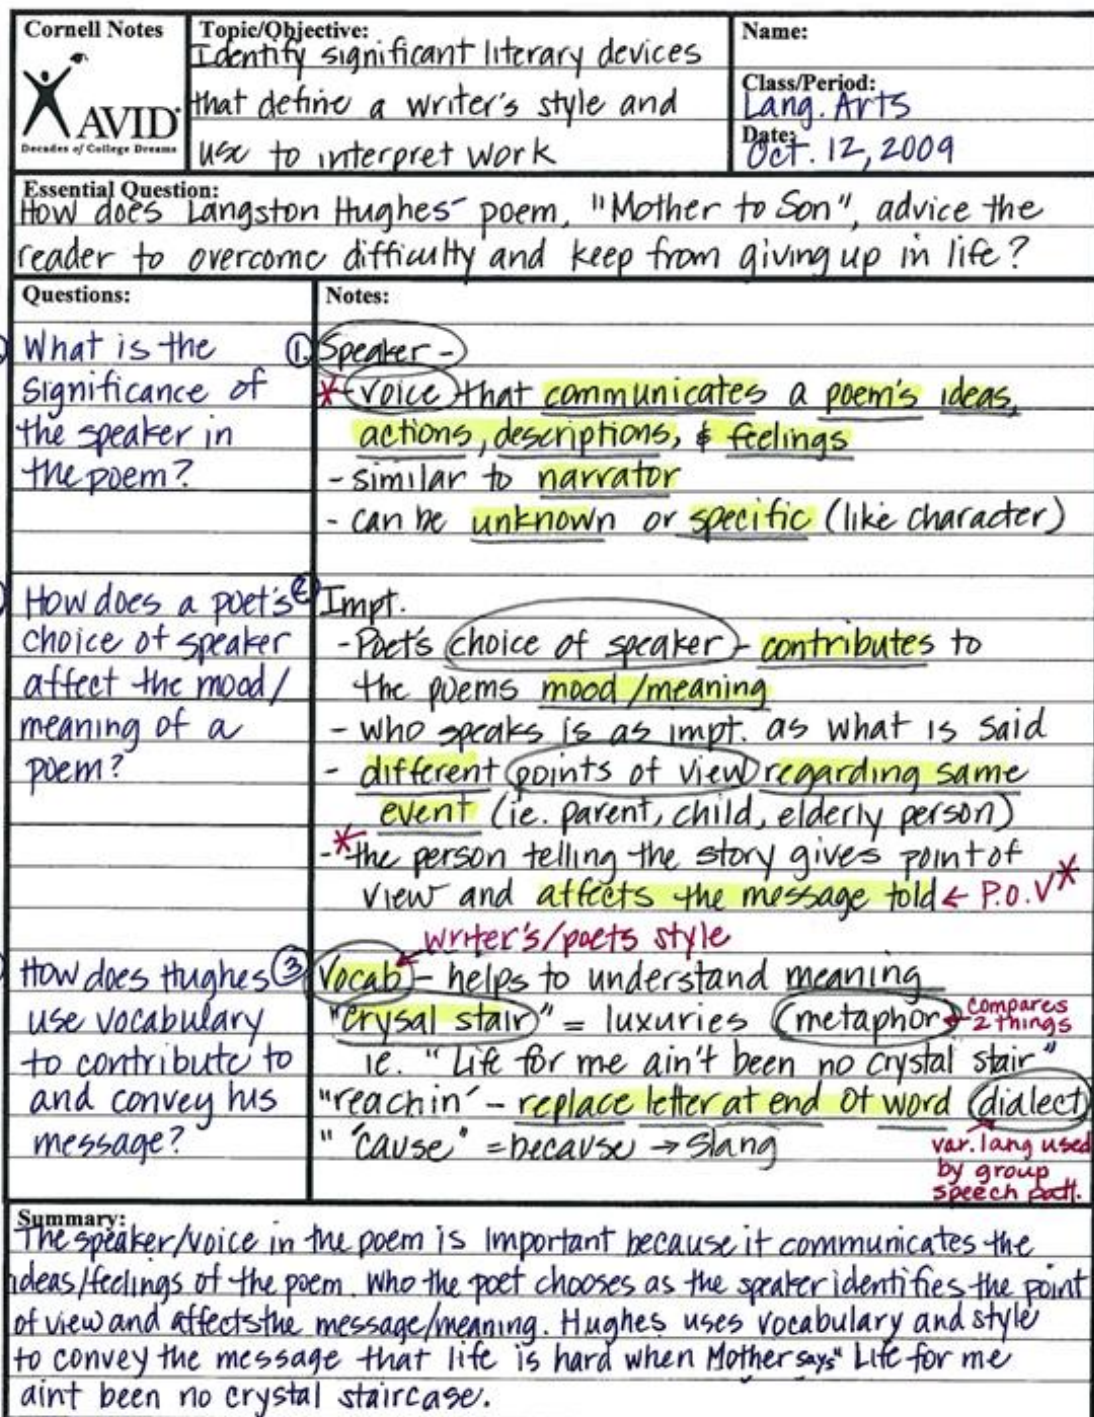 Cornell Notes
AVID
Decades of College Dreams
Topic/Objective:
Identify significant literary devices
that define a writer's style and
use to interpret work
Name:
Class/Period:
Lang. Arts
Date:
Oct. 12, 2009
Essential Question:
How does Langston Hughes' poem, "Mother to Son", advice the
reader to overcome difficulty and keep from giving up in life?
Questions:
What is the
significance of
the speaker in
the poem?
How does a poet's
choice of speaker
affect the mood/
meaning of a
poem?
How does Hughes
use vocabulary
to contribute to
and convey his
message?
Notes:
1. Speaker -
* - voice that communicates a poem's ideas,
actions, descriptions, & feelings
- similar to narrator
- can be unknown or specific (like character)
2 Impt.
- Poet's choice of speaker - contributes to
the poems mood/meaning
- who speaks is as impt. as what is said
- different points of view regarding same
event (ie. parent, child, elderly person)
- * the person telling the story gives point of
view and affects the message told ← P.O.V *
writer's/poets style
3 Vocab - helps to understand meaning
"crysal stair" = luxuries (metaphor) ← compares
2 things
ie. "Life for me ain't been no crystal stair"
"reachin' - replace letter at end of word (dialect)
" 'cause " = because → slang
var. lang used
by group
speech patt.
Summary:
The speaker/voice in the poem is important because it communicates the
ideas/feelings of the poem. Who the poet chooses as the speaker identifies the point
of view and affects the message/meaning. Hughes uses vocabulary and style
to convey the message that life is hard when Mother says "Life for me
aint been no crystal staircase.